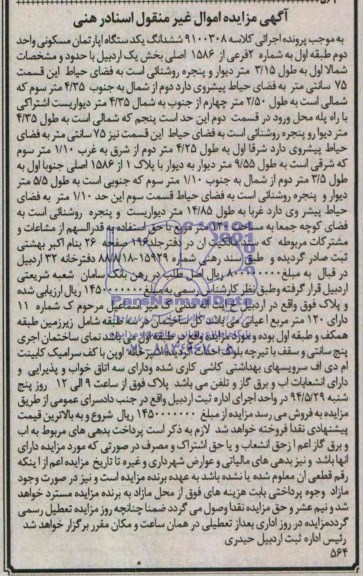 آگهی مزایده اموال غیر منقول اسنادرهنی
به موجب پرونده اجرائی کلاسه ۹۱۰۰۳۰۸ ششدانگ یکدستگاه اپارتمان مسکونی واحد
دوم طبقه اول به شماره ۲فرعی از ۱۵۸۶ اصلی بخش یک اردبیل با حدود و مشخصات
شمالا اول به طول ۳/۱۵ متر دیوار و پنجره روشنائی است به فضای حیاط این قسمت
۷۵ سانتی متر به فضای حیاط پیشروی دارد دوم از شمال به جنوب ۴/۳۵ متر سوم که
شمالی است به طول ۲/۵۰ متر چهارم از جنوب به شمال ۴/۳۵ متر دیواریست اشتراکی
با راه پله محل ورود در قسمت دوم این حد است پنجم که شمالی است به طول ۴/۳۵
متر دیوار و پنجره روشنائی است به فضای حیاط این قسمت نیز ۷۵ سانتی متر به فضای
حیاط پیشروی دارد شرقا اول به طول ۴/۲۵ متر دوم از شرق به غرب ۱/۱۰ متر سوم
که شرقی است به طول ۹/۵۵ متر دیوار به دیوار با پلاک ۱ از ۱۵۸۶ اصلی جنوبا اول به
طول ۳/۵ متر دوم از شمال به جنوب ۱/۱۰ متر سوم که جنوبی است به طول ۵/۵ متر
دیوار و پنجره روشنائی است به فضای حیاط قسمت سوم این حد ۱/۱۰ متر به فضای
حیاط پیشر وی دارد غربا به طول ۱۴/۸۵ متر دیواریست و پنجره روشنائی است به
فضای کوچه جمعا به مساحت ۱۳۰ متر مربع با حق استفاده به قدرالسهم از مشاعات و
مشترکات مربوطه که سند مالکیت آن در دفترجلد ۱۹۶ صفحه ۲۶ بنام اکبر بهشتی
ثبت صادر گردیده و طبق سند رهنی شماره ۱۵۹۲۹-۸۸/۸/۱۸ دفترخانه ۳۲ اردبیل
در قبال به مبلغ ریال اصل طلب در رهن بانک سامان شعبه شریعتی
اردبیل قرار گرفته وطبق نظر کارشناس رسمی به مبلغ ۱۴۵۰۰۰۰۰۰۰ ریال ارزیابی شده
و پلاک فوق واقع در اردبیل مرحوم ک شماره ۱۱
دارای ۱۳۰ متر مربع اعیانی می باشد کل ساختمان در سه طبقه شامل زیرزمین طبقه
همکف و طبقه اول بوده و مورد مزایده واقع در طبقه اول می باشد نمای ساختمان اجری
پنج سانتی و سقف با تیرچه بلوک احداث گردیده اوپن با کف سرامیک کابینت
ام دی اف سرویسهای بهداشتی کاشی کاری شده ودارای سه اتاق خواب و پذیرایی و
دارای انشعابات اب و برق گاز و تلفن می باشد پلاک فوق از ساعت ۹ الی ۱۲ روز پنج
شنبه ۹۴/۵/۲۹ در واحد اجرای اداره ثبت اردبیل واقع در جنب دادسرای عمومی از طریق
مزایده به فروش می رسد مزایده از مبلغ ۱۴۵۰۰۰۰۰۰۰ ریال شروع و به بالاترین قیمت
پیشنهادی نقدا فروخته خواهد شد لازم به ذکر است پرداخت بدهی های مربوط به اب
و برق گاز اعم از حق انشعاب و یا حق اشتراک و مصرف در صورتی که مورد مزایده دارای
انها باشد و نیز بدهی های مالیاتی و عوارض شهرداری و غیره تا تاریخ مزایده اعم از اینکه
رقم قطعی ان معلوم شده یا نشده باشد به عهده برنده مزایده است و نیز در صورت وجود
مازاد وجوه پرداختی بابت هزینه های فوق از محل مازاد به برنده مزایده مسترد خواهد
شد و نیم عشر و حق مزایده نقدا وصول می گردد ضمنا چنانچه روز مزایده تعطیل رسمی
گرددمزایده در روز اداری بعداز تعطیلی در همان ساعت و مکان مقرر برگزار خواهد شد
رئیس اداره ثبت اردبیل حیدری
۵۶۴